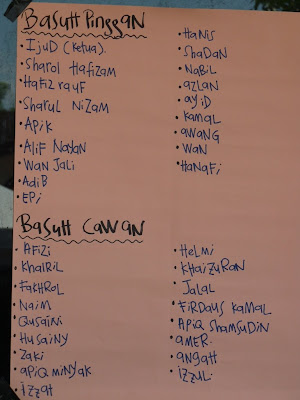 Basuh Pinggan
• Ijud (Ketua)
• Sharol Hafizam
• Hafiz rauf
• Sharul Nizam
• Apik
• Alif Nayan
• Wan Jali
• Adib
• Epi
• Hanis
• Shadan
• Nabil
• azlan
• ayid
• Kamal
• awang
• wan
• Hanafi
Basuh Cawan
• Afizi
• Khairil
• Fakhrol
• Naim
• Qusaini
• Husainy
• Zaki
• apiq minyak
• izzat
• Helmi
• Khaizuran
• Jalal
• Firdaus Kamal
• Apiq Shamsudin
• amer.
• angah
• izzul.